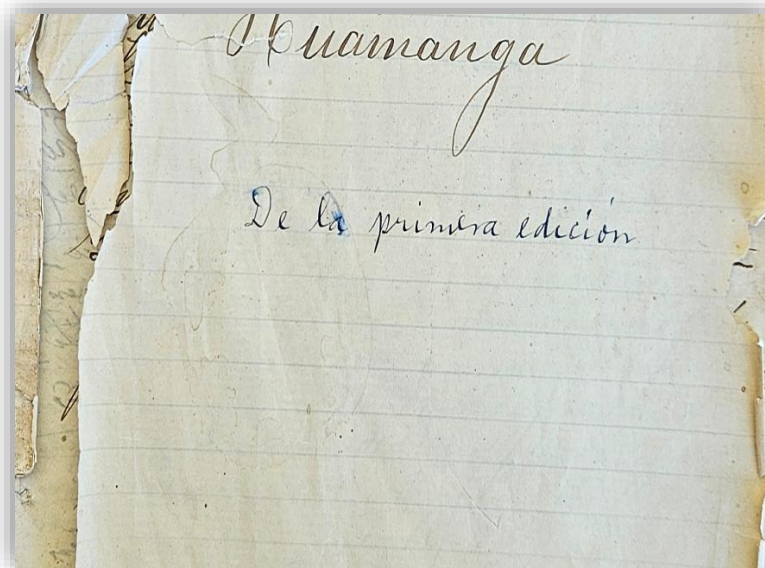 Huamanga
De la primera edición